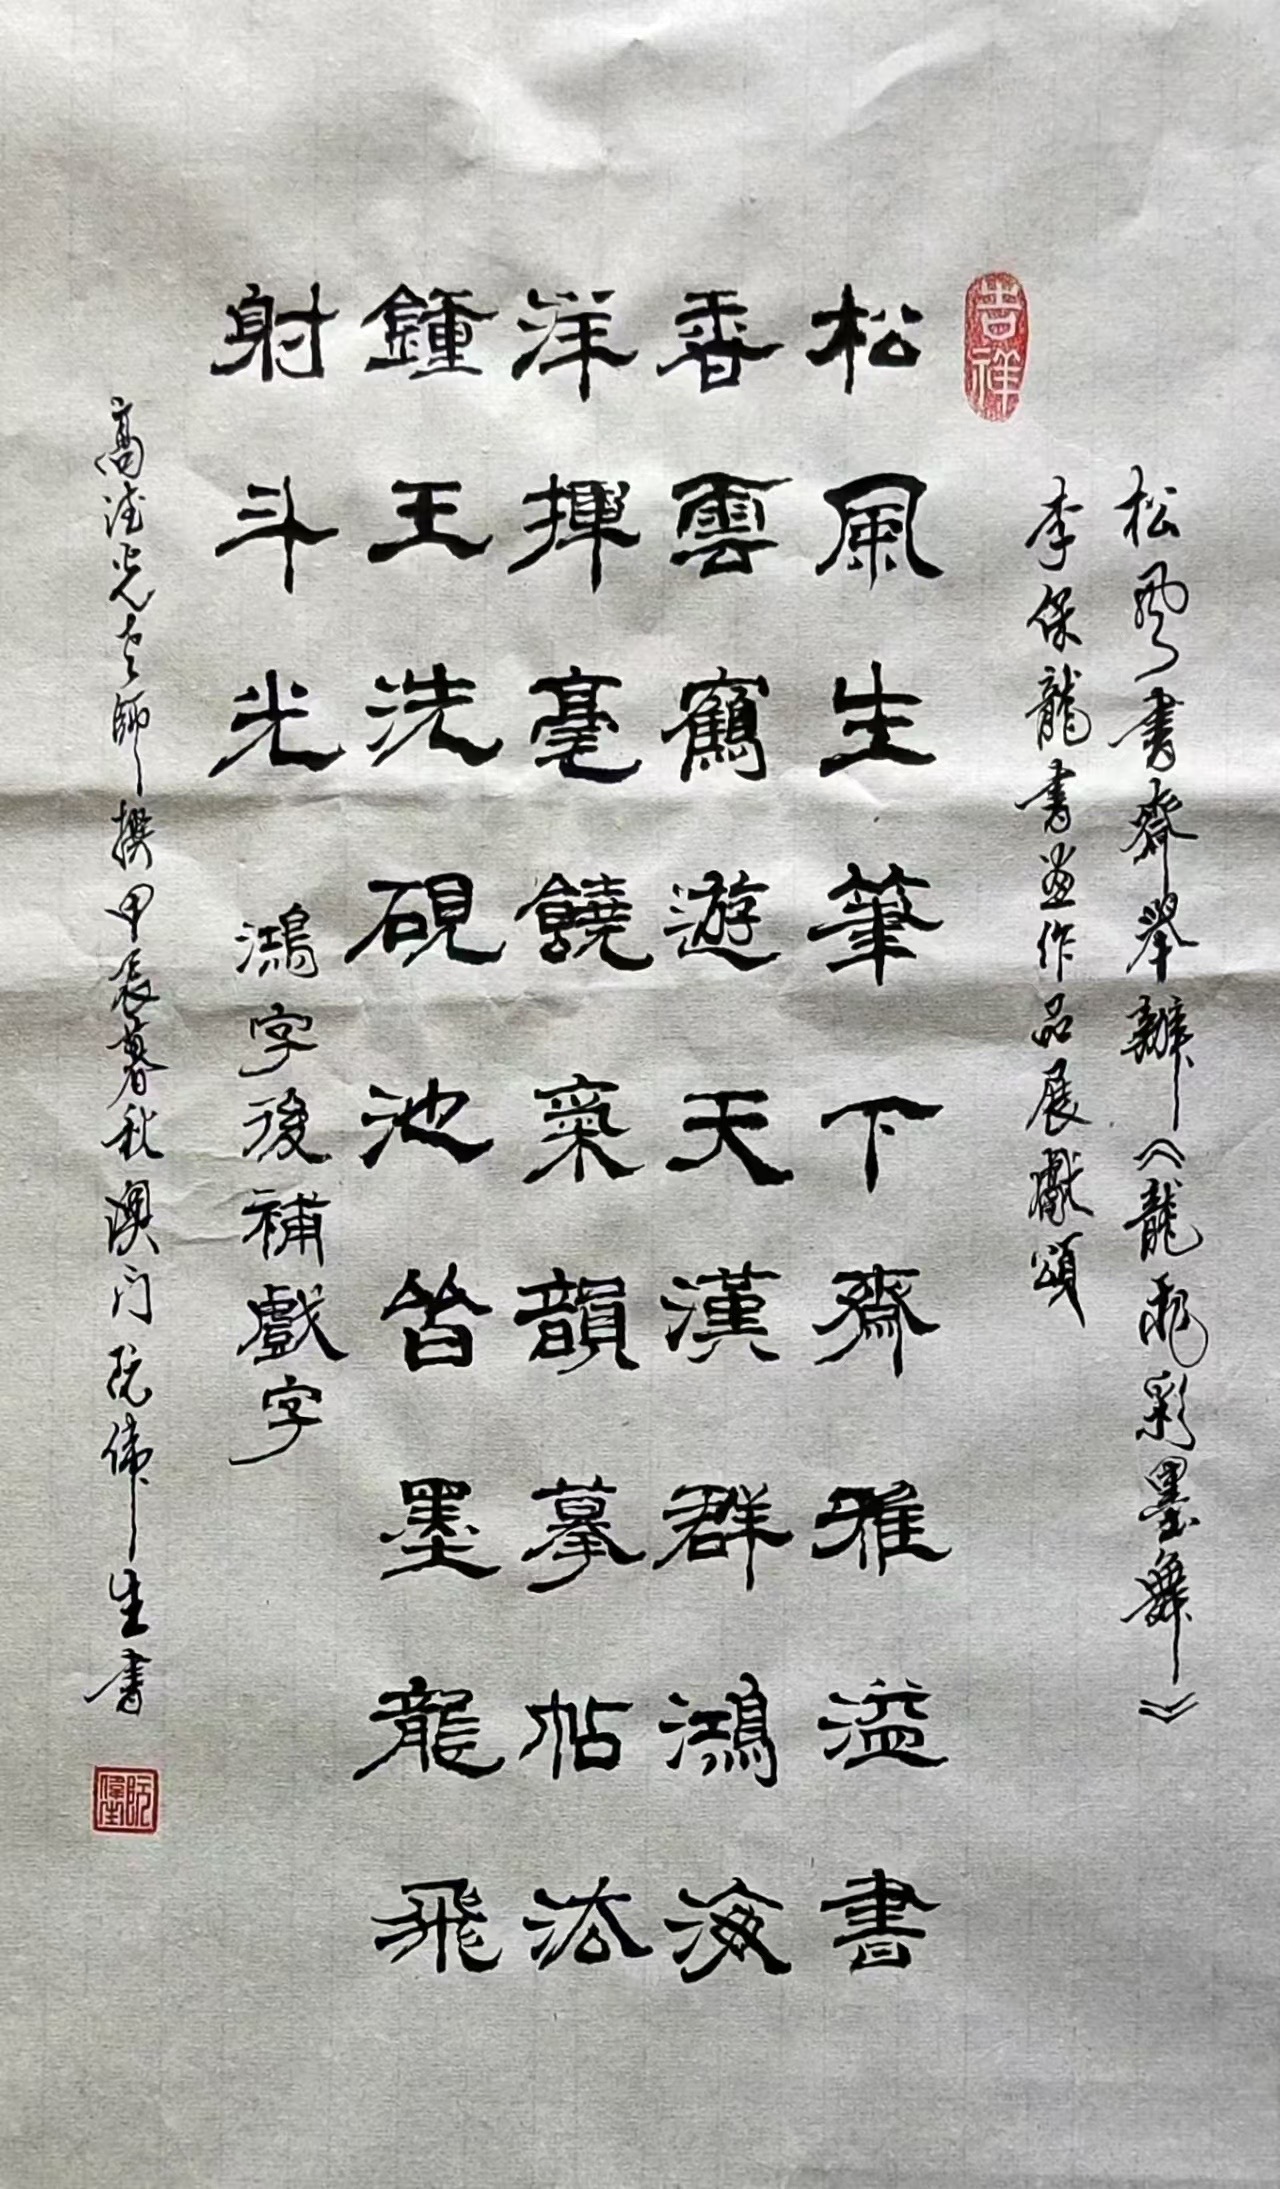 松風書齋舉辦《龍飛彩墨舞》
李保龍書畫作品展獻頌
吉祥
松風生筆下齋雅溢書
香雲鶴遊天漢群鴻海
洋揮毫饒氣韻摹帖法
鍾王洗硯池皆墨龍飛
射斗光
鴻字後補戲字
高德光老師撰甲辰暮秋澳门阮偉生書
阮偉生